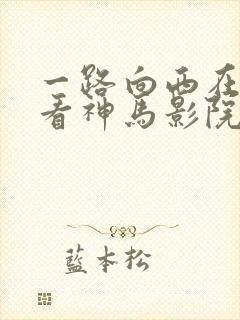 一路向西在
看神马影院
藍本松